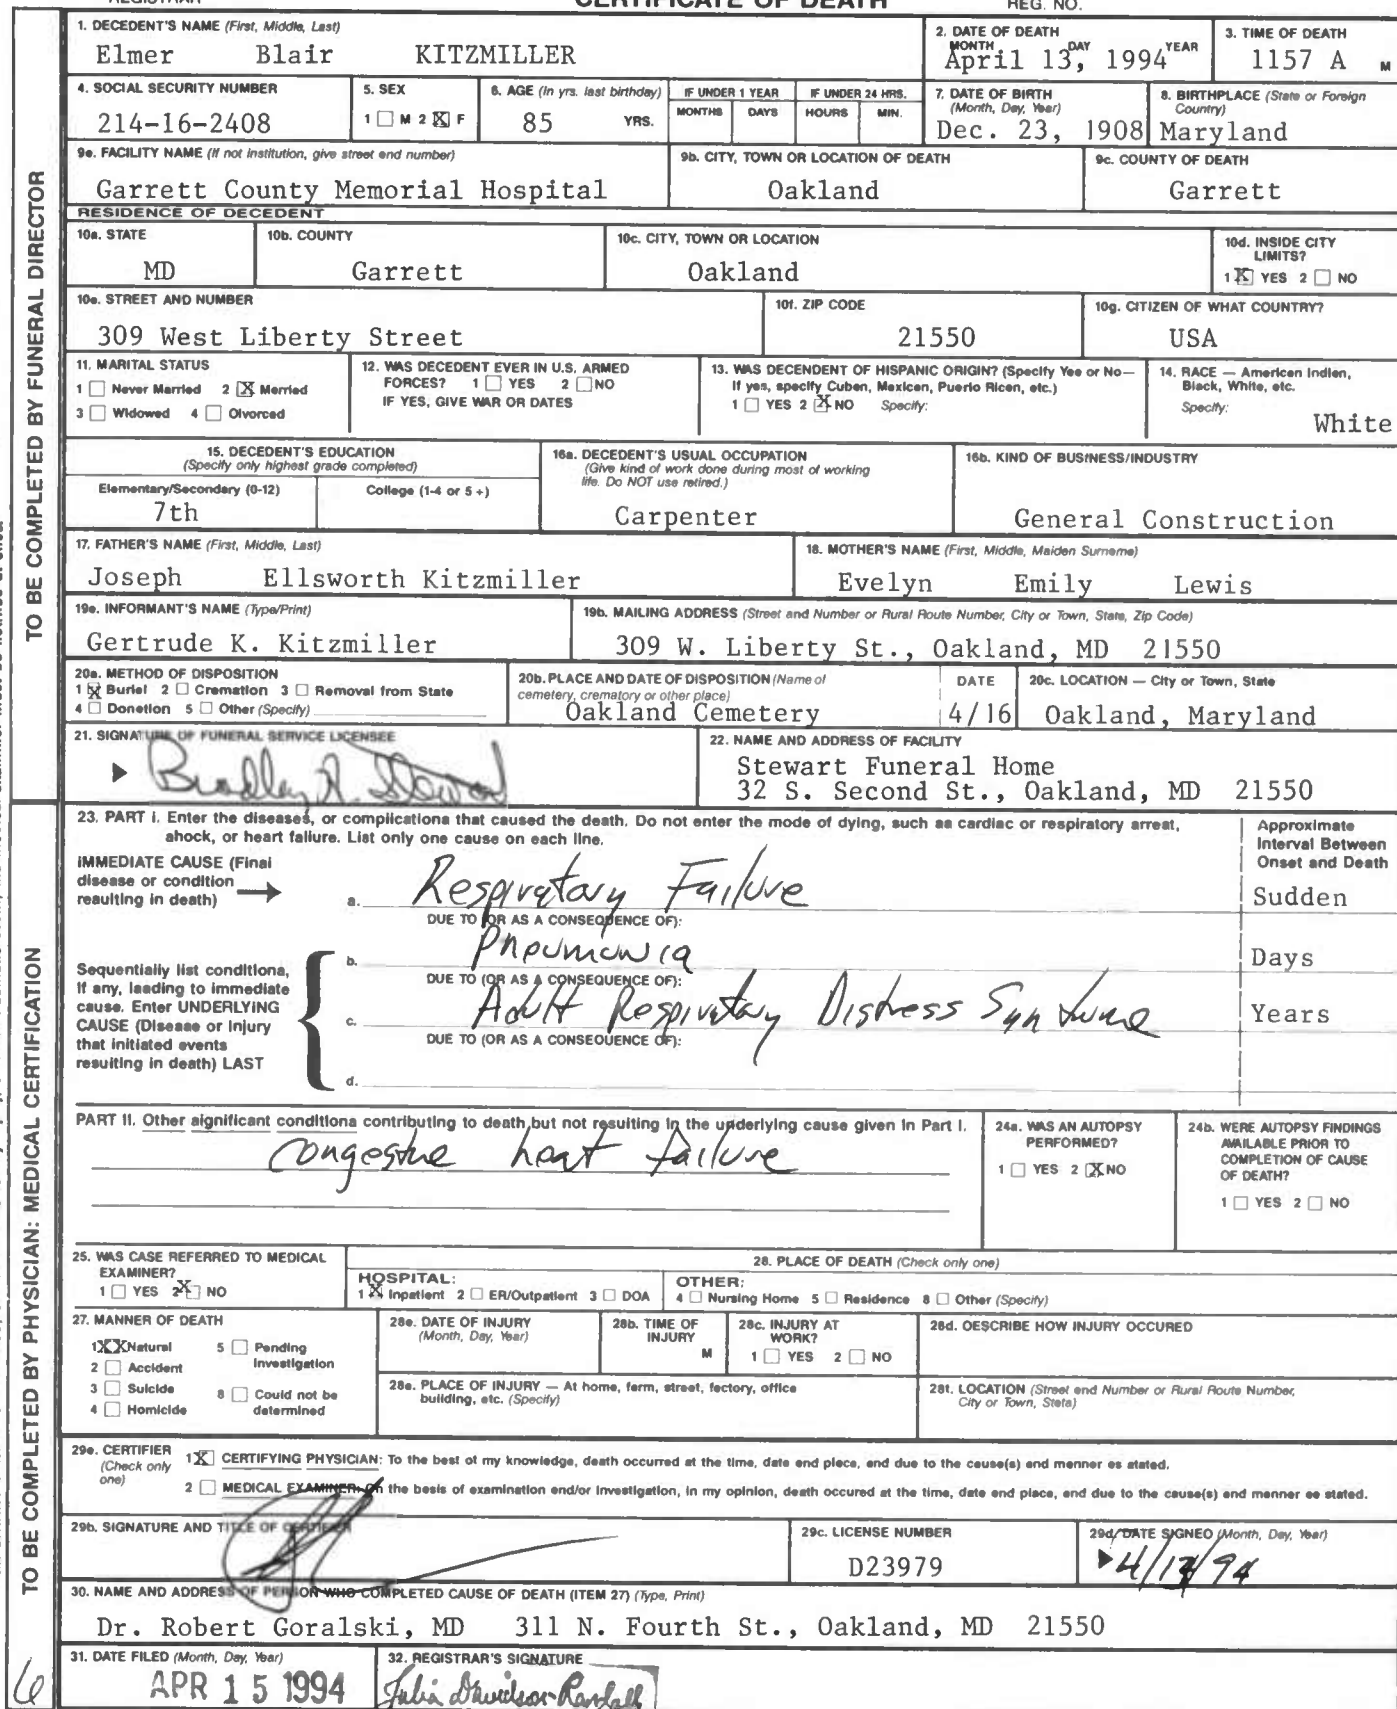 CERTIFICATE OF DEATH
REGISTRAR
REG. NO.
1. DECEDENT'S NAME (First, Middle, Last)
Elmer Blair KITZMILLER
2. DATE OF DEATH
MONTH DAY YEAR
April 13, 1994
3. TIME OF DEATH
1157 A M
4. SOCIAL SECURITY NUMBER
214-16-2408
5. SEX
1 ☐ M 2 ☒ F
6. AGE (In yrs. last birthday)
85 YRS.
IF UNDER 1 YEAR
MONTHS DAYS
IF UNDER 24 HRS.
HOURS MIN.
7. DATE OF BIRTH
(Month, Day, Year)
Dec. 23, 1908
8. BIRTHPLACE (State or Foreign
Country)
Maryland
9a. FACILITY NAME (If not institution, give street and number)
Garrett County Memorial Hospital
9b. CITY, TOWN OR LOCATION OF DEATH
Oakland
9c. COUNTY OF DEATH
Garrett
RESIDENCE OF DECEDENT
10a. STATE
MD
10b. COUNTY
Garrett
10c. CITY, TOWN OR LOCATION
Oakland
10d. INSIDE CITY
LIMITS?
1 ☒ YES 2 ☐ NO
10e. STREET AND NUMBER
309 West Liberty Street
10f. ZIP CODE
21550
10g. CITIZEN OF WHAT COUNTRY?
USA
11. MARITAL STATUS
1 ☐ Never Married 2 ☒ Married
3 ☐ Widowed 4 ☐ Divorced
12. WAS DECEDENT EVER IN U.S. ARMED
FORCES? 1 ☐ YES 2 ☐ NO
IF YES, GIVE WAR OR DATES
13. WAS DECENDENT OF HISPANIC ORIGIN? (Specify Yes or No—
If yes, specify Cuban, Mexican, Puerto Rican, etc.)
1 ☐ YES 2 ☒ NO Specify:
14. RACE — American Indian,
Black, White, etc.
Specify:
White
15. DECEDENT'S EDUCATION
(Specify only highest grade completed)
Elementary/Secondary (0-12)
7th
College (1-4 or 5+)
16a. DECEDENT'S USUAL OCCUPATION
(Give kind of work done during most of working
life. Do NOT use retired.)
Carpenter
16b. KIND OF BUSINESS/INDUSTRY
General Construction
17. FATHER'S NAME (First, Middle, Last)
Joseph Ellsworth Kitzmiller
18. MOTHER'S NAME (First, Middle, Maiden Surname)
Evelyn Emily Lewis
19a. INFORMANT'S NAME (Type/Print)
Gertrude K. Kitzmiller
19b. MAILING ADDRESS (Street and Number or Rural Route Number, City or Town, State, Zip Code)
309 W. Liberty St., Oakland, MD 21550
20a. METHOD OF DISPOSITION
1 ☒ Burial 2 ☐ Cremation 3 ☐ Removal from State
4 ☐ Donation 5 ☐ Other (Specify)
20b. PLACE AND DATE OF DISPOSITION (Name of
cemetery, crematory or other place)
Oakland Cemetery
DATE
4/16
20c. LOCATION — City or Town, State
Oakland, Maryland
21. SIGNATURE OF FUNERAL SERVICE LICENSEE
Bradley A. Stewart
22. NAME AND ADDRESS OF FACILITY
Stewart Funeral Home
32 S. Second St., Oakland, MD 21550
TO BE COMPLETED BY FUNERAL DIRECTOR
23. PART I. Enter the diseases, or complications that caused the death. Do not enter the mode of dying, such as cardiac or respiratory arrest,
shock, or heart failure. List only one cause on each line.
Approximate
Interval Between
Onset and Death
IMMEDIATE CAUSE (Final
disease or condition
resulting in death)
a. Respiratory Failure
Sudden
DUE TO (OR AS A CONSEQUENCE OF):
b. Pneumonia
Days
DUE TO (OR AS A CONSEQUENCE OF):
c. Adult Respiratory Distress Syndrome
Years
DUE TO (OR AS A CONSEQUENCE OF):
d.
Sequentially list conditions,
if any, leading to immediate
cause. Enter UNDERLYING
CAUSE (Disease or injury
that initiated events
resulting in death) LAST
PART II. Other significant conditions contributing to death but not resulting in the underlying cause given in Part I.
Congestive heart failure
24a. WAS AN AUTOPSY
PERFORMED?
1 ☐ YES 2 ☒ NO
24b. WERE AUTOPSY FINDINGS
AVAILABLE PRIOR TO
COMPLETION OF CAUSE
OF DEATH?
1 ☐ YES 2 ☐ NO
25. WAS CASE REFERRED TO MEDICAL
EXAMINER?
1 ☐ YES 2 ☒ NO
26. PLACE OF DEATH (Check only one)
HOSPITAL:
1 ☒ Inpatient 2 ☐ ER/Outpatient 3 ☐ DOA
OTHER:
4 ☐ Nursing Home 5 ☐ Residence 6 ☐ Other (Specify)
27. MANNER OF DEATH
1 XX Natural 5 ☐ Pending
Investigation
2 ☐ Accident
3 ☐ Suicide 6 ☐ Could not be
determined
4 ☐ Homicide
28a. DATE OF INJURY
(Month, Day, Year)
28b. TIME OF
INJURY
M
28c. INJURY AT
WORK?
1 ☐ YES 2 ☐ NO
28d. DESCRIBE HOW INJURY OCCURED
28e. PLACE OF INJURY — At home, farm, street, factory, office
building, etc. (Specify)
28f. LOCATION (Street and Number or Rural Route Number,
City or Town, State)
29a. CERTIFIER
(Check only
one)
1 ☒ CERTIFYING PHYSICIAN: To the best of my knowledge, death occurred at the time, date and place, and due to the cause(s) and manner as stated.
2 ☐ MEDICAL EXAMINER: On the basis of examination and/or investigation, in my opinion, death occured at the time, date and place, and due to the cause(s) and manner as stated.
29b. SIGNATURE AND TITLE OF CERTIFIER
29c. LICENSE NUMBER
D23979
29d. DATE SIGNED (Month, Day, Year)
30. NAME AND ADDRESS OF PERSON WHO COMPLETED CAUSE OF DEATH (ITEM 27) (Type, Print)
Dr. Robert Goralski, MD 311 N. Fourth St., Oakland, MD 21550
31. DATE FILED (Month, Day, Year)
APR 15 1994
32. REGISTRAR'S SIGNATURE
Julia Davidson-Randall
TO BE COMPLETED BY PHYSICIAN: MEDICAL CERTIFICATION